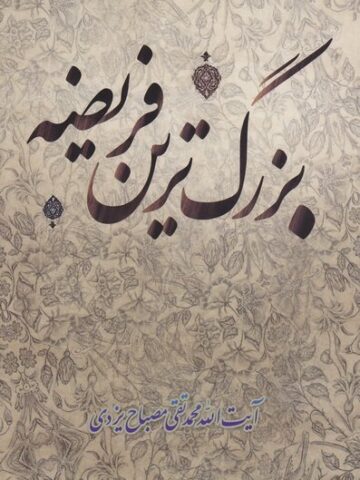 بزرگ‌ترین فریضه
آیت الله محمد تقی مصباح یزدی